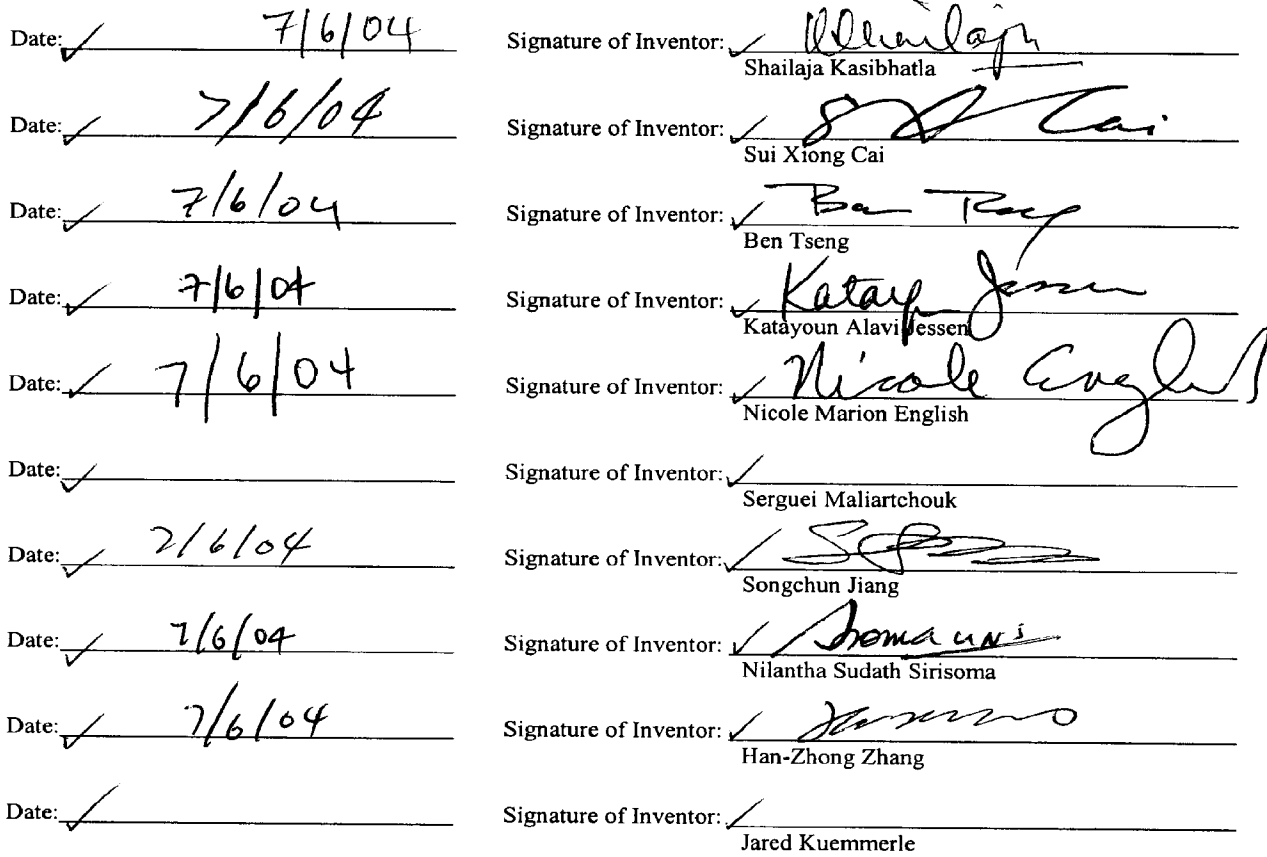 Date: ✓ 7/6/04 Signature of Inventor: ✓
Shailaja Kasibhatla
Date: ✓ 7/6/04 Signature of Inventor: ✓ Cai
Sui Xiong Cai
Date: ✓ 7/6/04 Signature of Inventor: ✓ Ben
Ben Tseng
Date: ✓ 7/6/04 Signature of Inventor: ✓ Katayoun Jessen
Katayoun Alavi Jessen
Date: ✓ 7/6/04 Signature of Inventor: ✓ Nicole English
Nicole Marion English
Date: ✓ Signature of Inventor: ✓
Serguei Maliartchouk
Date: ✓ 7/6/04 Signature of Inventor: ✓
Songchun Jiang
Date: ✓ 7/6/04 Signature of Inventor: ✓
Nilantha Sudath Sirisoma
Date: ✓ 7/6/04 Signature of Inventor: ✓
Han-Zhong Zhang
Date: ✓ Signature of Inventor: ✓
Jared Kuemmerle